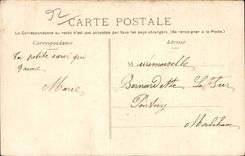 52
CARTE POSTALE
La Correspondance au recto n'est pas acceptée par tous les pays étrangers. (Se renseigner à la Poste.)
Correspondance
Adresse
La petite sœur qui
t'aime
Marie
Mademoiselle
Bernadette Le
Pontivy
Morbihan